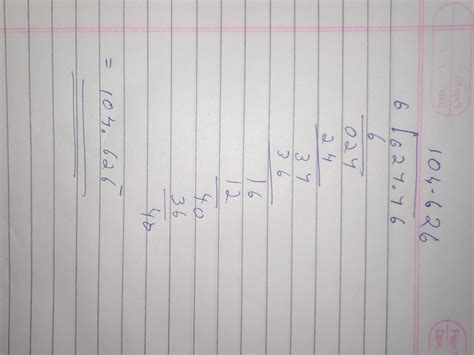 104.626
6 ⟌627.76
6
027
24
37
36
16
12
40
36
40
= 104.626̄